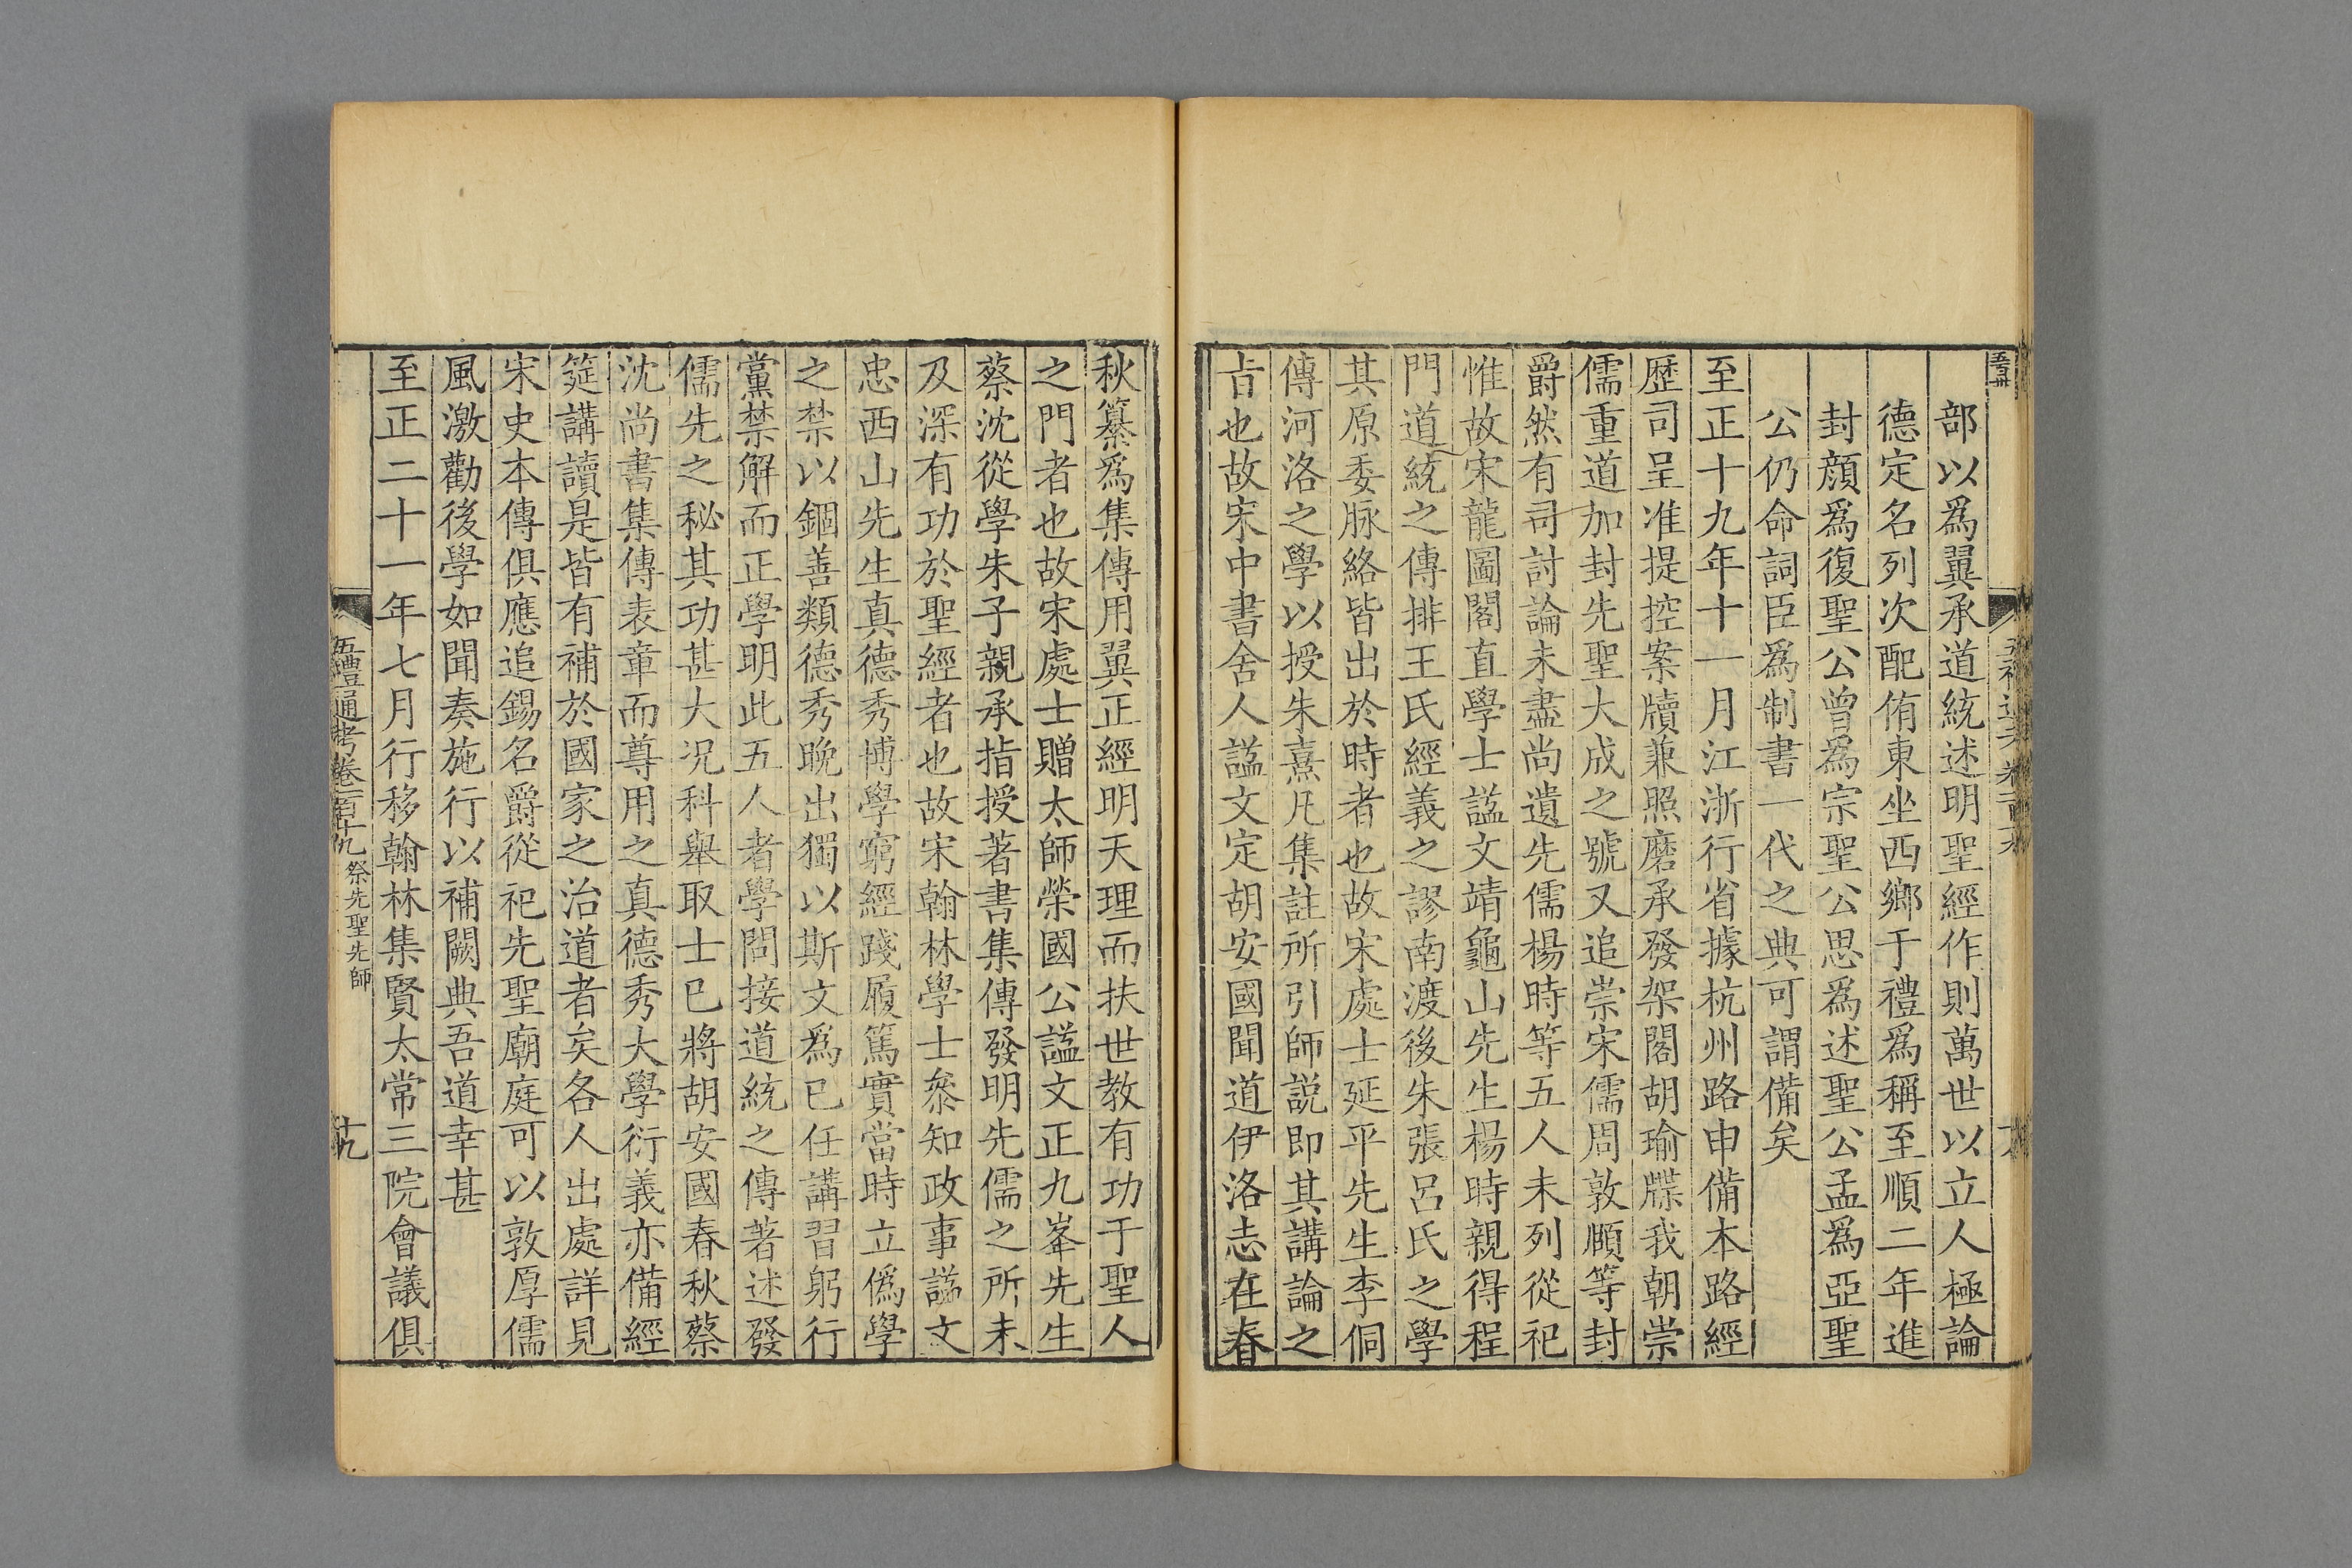 部以爲翼承道統述明聖經作則萬世以立人極論
德定名列次配侑東坐西鄉于禮爲稱至順二年進
封顔爲復聖公曾爲宗聖公思爲述聖公孟爲亞聖
公仍命詞臣爲制書一代之典可謂備矣
至正十九年十一月江浙行省據杭州路申備本路經
歷司呈准提控案牘兼照磨承發架閣胡瑜牒我朝崇
儒重道加封先聖大成之號又追崇宋儒周敦頤等封
爵然有司討論未盡尚遺先儒楊時等五人未列從祀
惟故宋龍圖閣直學士諡文靖龜山先生楊時親得程
門道統之傳排王氏經義之謬南渡後朱張呂氏之學
其原委脉絡皆出於時者也故宋處士延平先生李侗
傳河洛之學以授朱熹凡集註所引師説即其講論之
㫖也故宋中書舍人諡文定胡安國聞道伊洛志在春
秋纂爲集傳用翼正經明天理而扶世教有功于聖人
之門者也故宋處士贈太師榮國公諡文正九峯先生
蔡沈從學朱子親承指授著書集傳發明先儒之所未
及深有功於聖經者也故宋翰林學士叅知政事諡文
忠西山先生真德秀博學窮經踐履篤實當時立僞學
之禁以錮善類德秀晚出獨以斯文爲已任講習躬行
黨禁解而正學明此五人者學問接道統之傳著述發
儒先之秘其功甚大况科舉取士已將胡安國春秋蔡
沈尚書集傳表章而尊用之真德秀大學衍義亦備經
筵講讀是皆有補於國家之治道者矣各人出處詳見
宋史本傳俱應追錫名爵從祀先聖廟庭可以敦厚儒
風激勸後學如聞奏施行以補闕典吾道幸甚
至正二十一年七月行移翰林集賢太常三院會議俱
五禮通考卷一百十九 祭先聖先師
十九